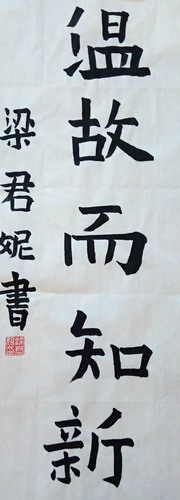 温故而知新
梁君妮書